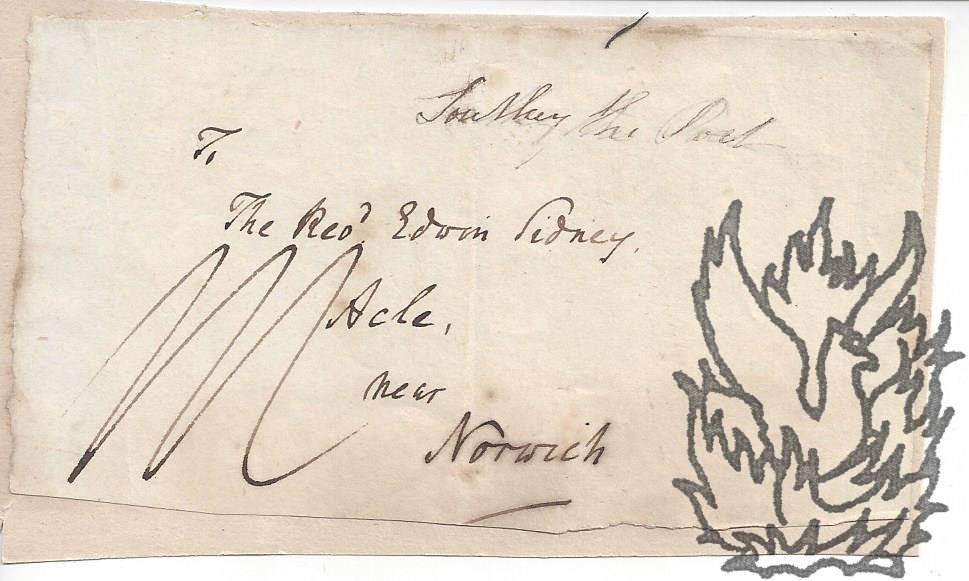 Southey the Poet
To
The Revd. Edwin Sidney,
Acle,
near
Norwich